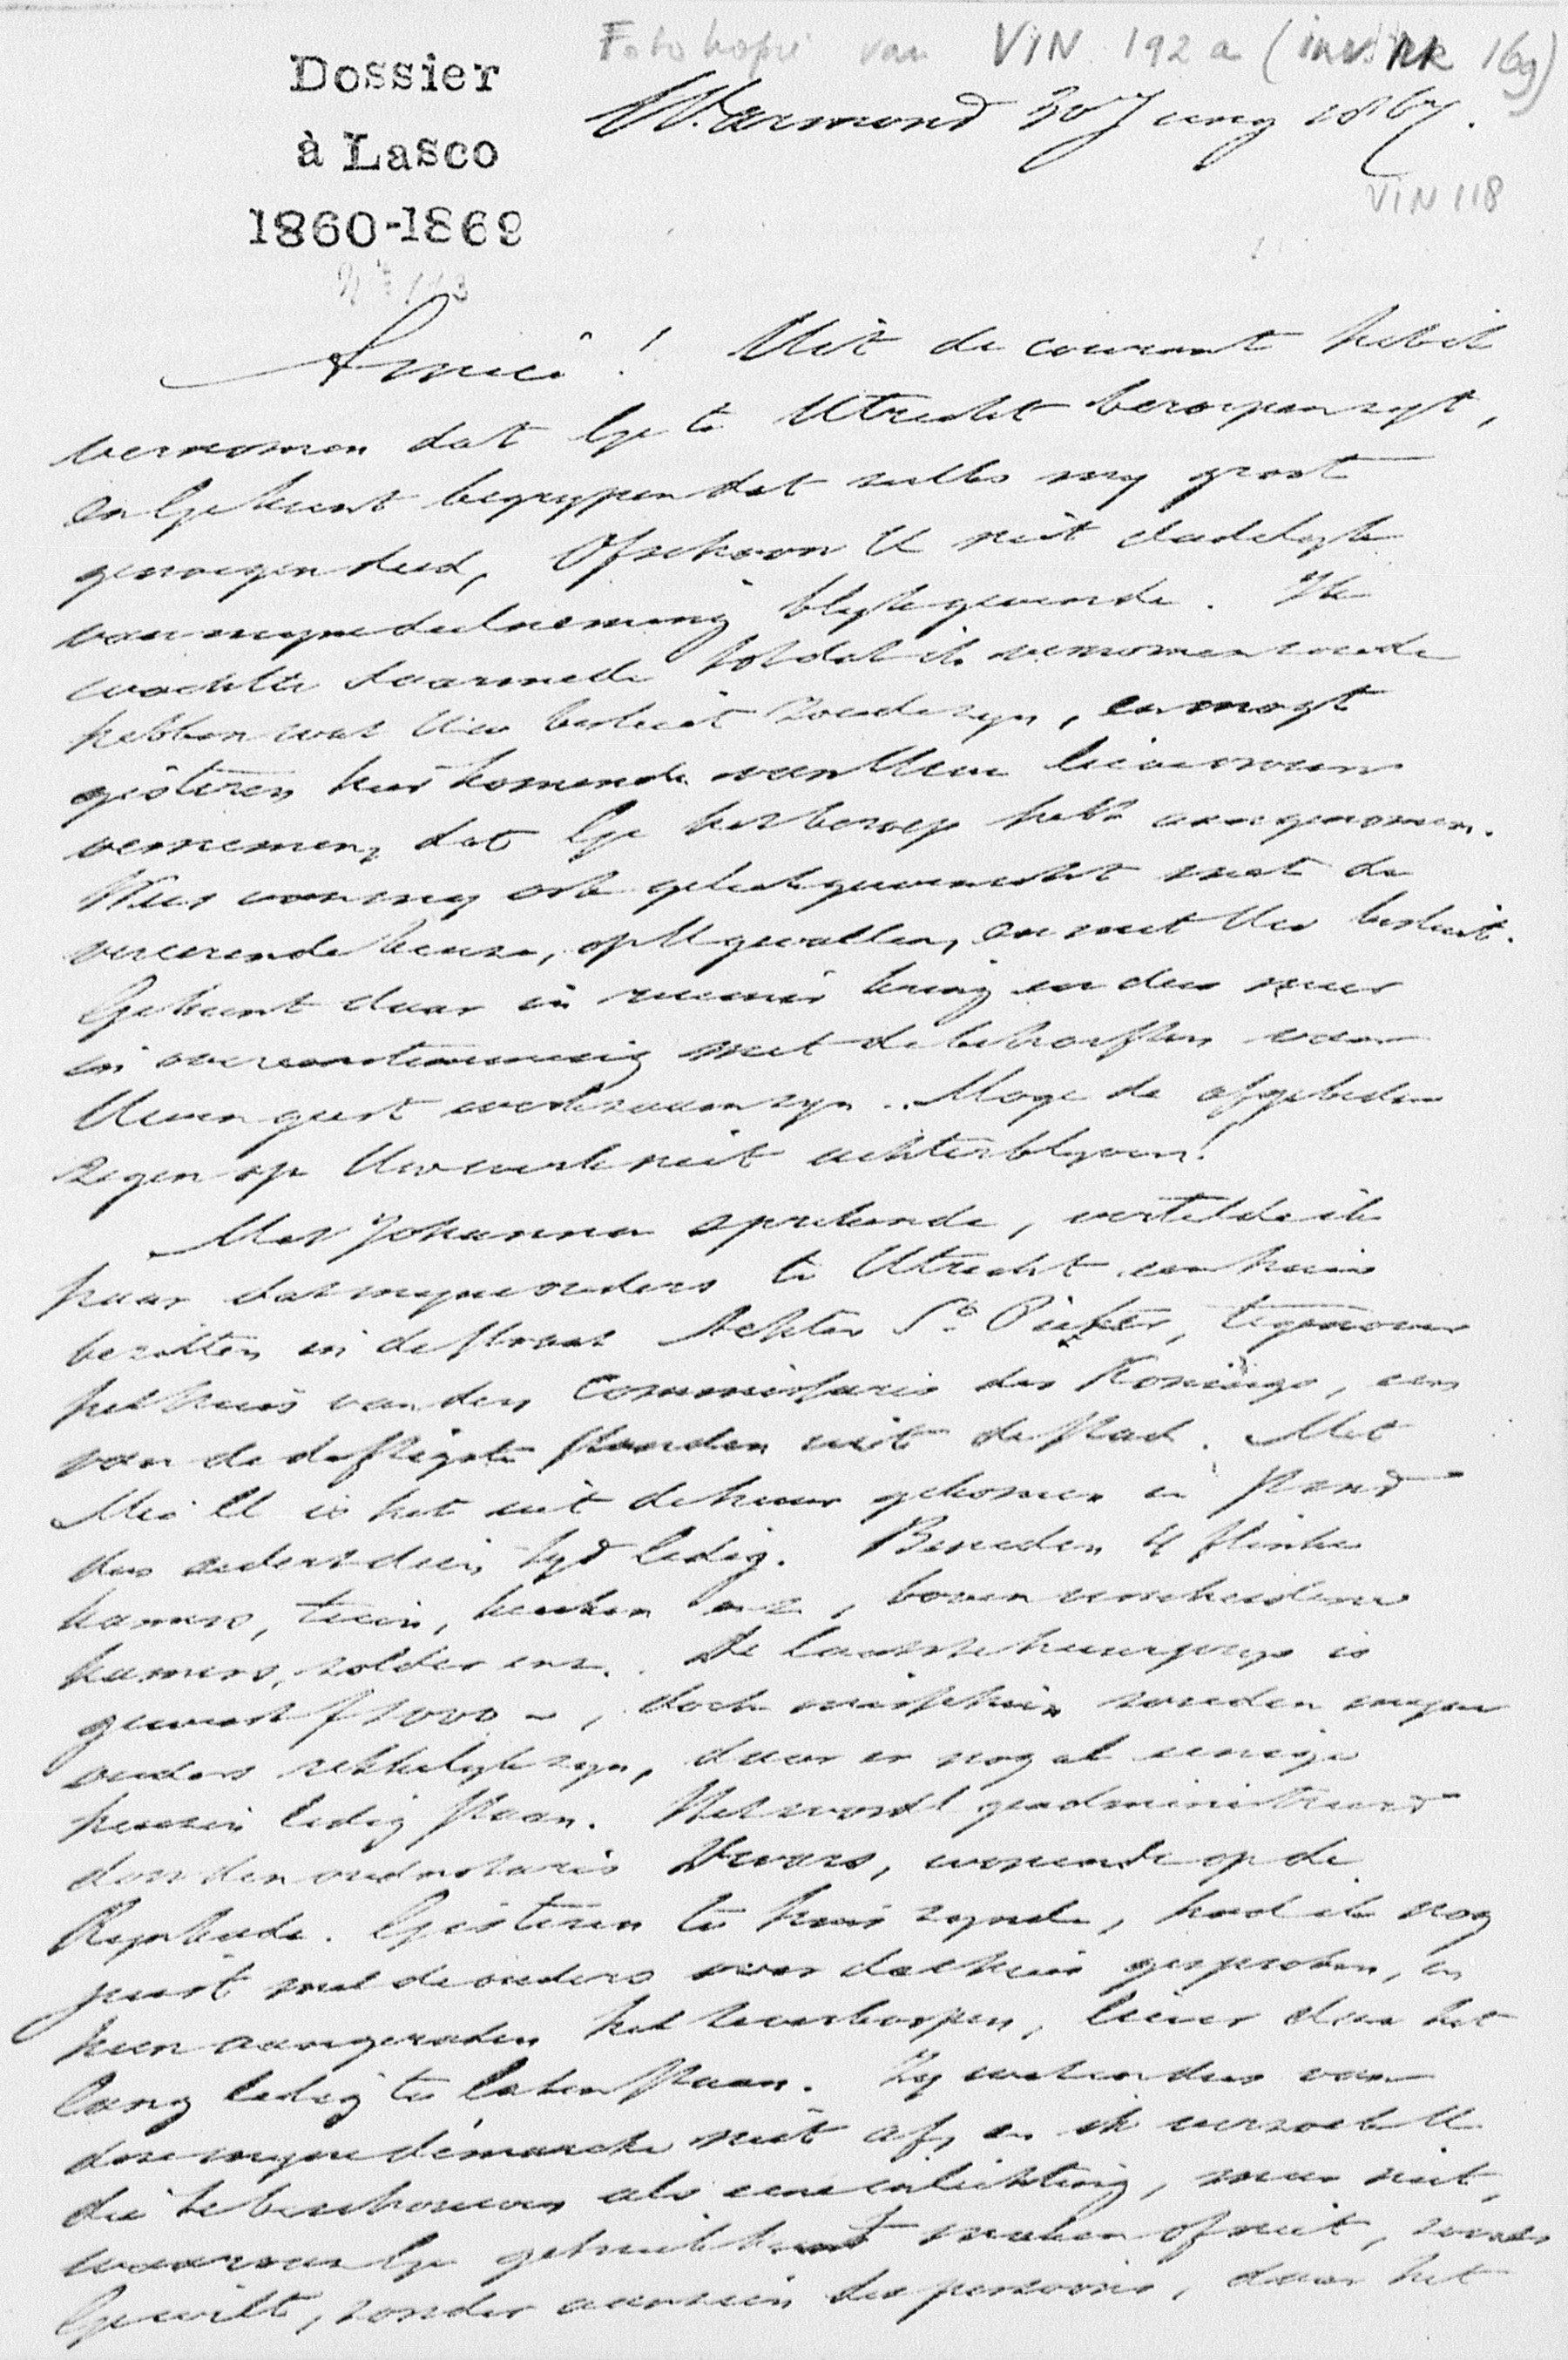 Fotokopie van VIN 192a (inv. nr 169)
Dossier
à Lasco
1860-1869
Warmond 30 Juny 1867.
VIN 118
Amice! Uit de courant heb ik
vernomen dat Gy te Utrecht beroepen zyt,
en Gy kunt begrypen dat zulks my groot
genoegen deed, Ofschoon U niet dadelyk
van myne deelneming blyk gevende. Ik
wachtte daarmede totdat ik vernomen zoude
hebben wat Uw besluit zoude zyn, en mogt
gisteren hier komende van Uwe lieve vrouw
vernemen, dat Gy het beroep hebt aangenomen.
Wees van my ook gelukgewenscht met de
vereerende keuze, op U gevallen, en met Uw besluit.
Gy kunt daar in ruimer kring en dus meer
in overeenstemming met de behoeften van
Uwen geest werkzaam zyn. Moge de afgebeden
zegen op Uw werk niet achterblyven!
Met Johanna sprekende, vertelde ik
haar dat myne ouders te Utrecht een huis
bezitten in de straat Achter St. Pieter, tegenover
het huis van den Commissaris des Konings, een
van de deftigste standen uit de stad. Met
Mei ll is het uit de huur gekomen en stond
dus sedert dien tyd ledig. Beneden 4 flinke
kamers, tuin, keuken enz, boven verscheidene
kamers, zolder enz. De laatste huurprys is
geweest f 1000 -, doch misschien zouden myne
ouders schikkelyk zyn, daar er nog al eenige
huizen ledig staan. Het wordt geadministreerd
door den oud notaris, wonende op de
Rynkade. Gisteren te huis zynde, had ik nog
juist met de ouders over dat huis gesproken, en
hen aangeraden het te verkoopen, liever dan het
lang ledig te laten staan. Zy weten dus van
deze myne démarche niet af, en ik verzoek U
die te beschouwen als eene inlichting, meer niet,
waarvan Gy gebruik kunt maken of niet, zooals
Gy wilt, zonder aanzien des persoons, daar het